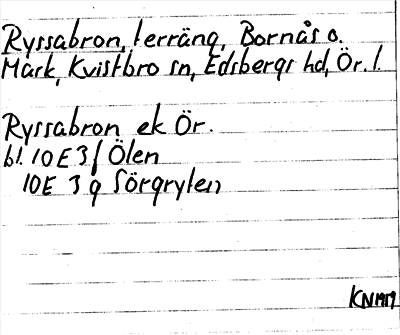 Ryssabron, terräng, Bornås o.
Mark, Kvistbro sn, Edsbergs hd, Ör. l.
Ryssabron ek Ör.
bl. 10E 3f Ölen
10E 3g Sörgrylen
KNMM